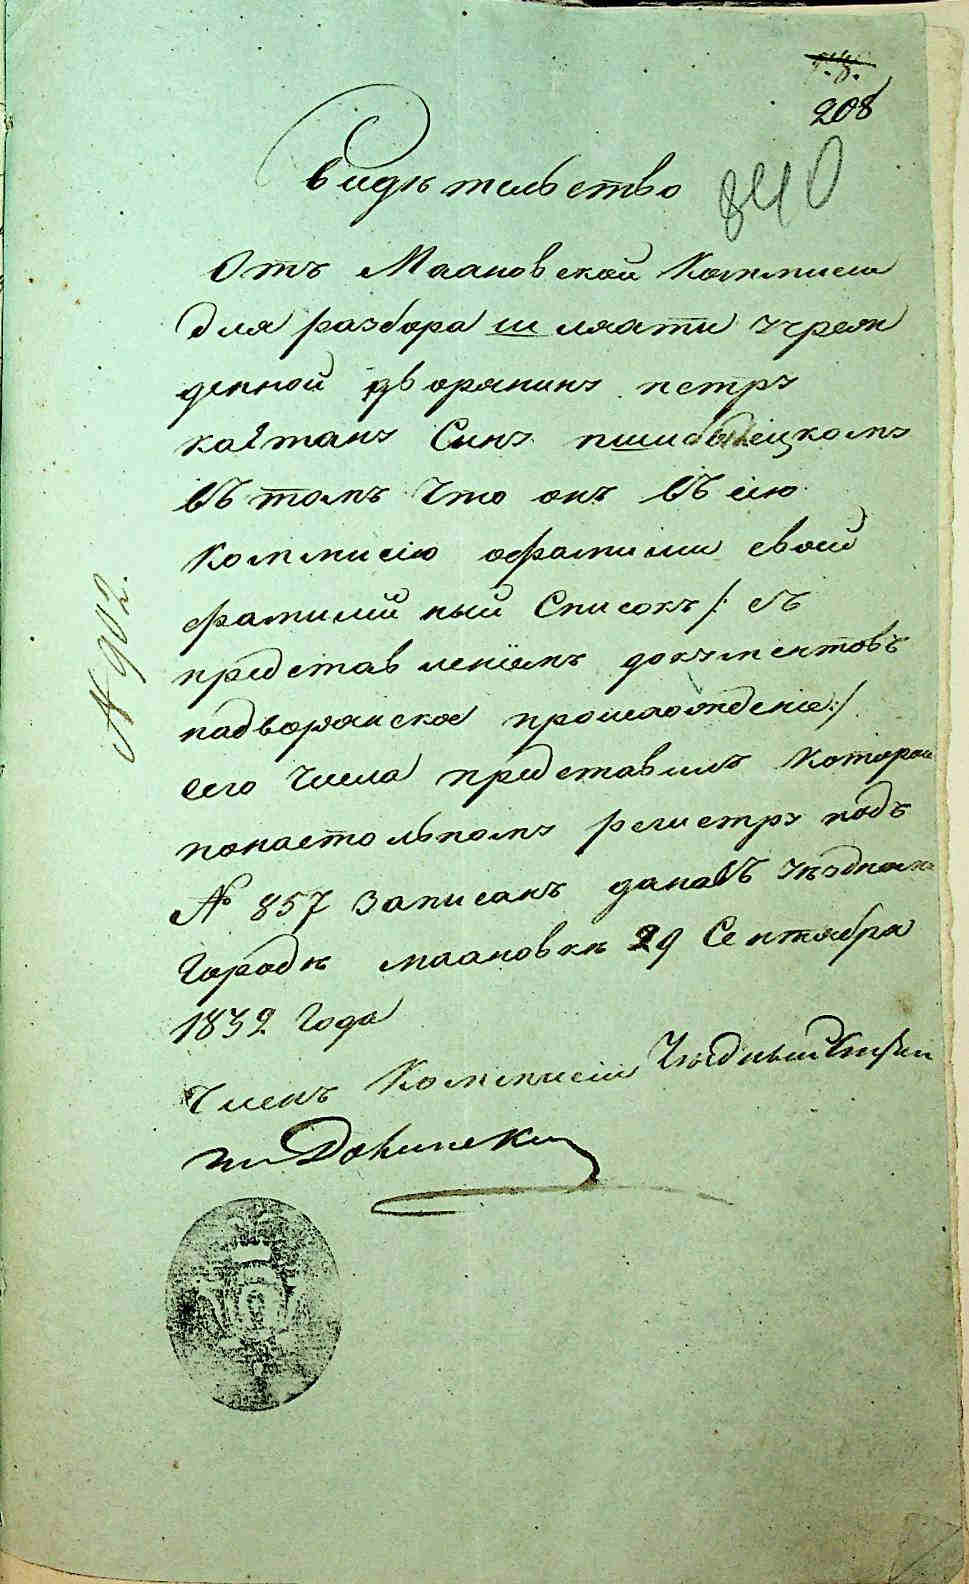 208
Свидѣтельство
840
Отъ Махновской Коммисіи
для разбора шляхти учреж
денной дворянину петру
каетану Сину пшибылецкому
въ томъ что онъ въ сію
Коммисію офамиліи своей
фамилій ный Списокъ /: съ
представленіемъ документовъ
надворянское происхожденіе :/
сего числа представилъ Которой
понастольному регистру подъ
№ 857 Записанъ данавъ уѣздномъ
Городѣ махновкѣ 29 Сентября
1832 Года
Членъ Коммисіи Уѣздный
№ 902.